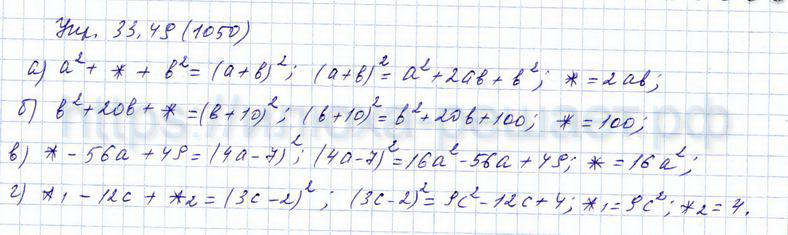 Упр. 33.49 (1050)
а) a² + * + b² = (a+b)²; (a+b)² = a² + 2ab + b²; * = 2ab;
б) b² + 20b + * = (b+10)²; (b+10)² = b² + 20b + 100; * = 100;
в) * - 56a + 49 = (4a-7)²; (4a-7)² = 16a² - 56a + 49; * = 16a²;
г) *₁ - 12c + *₂ = (3c-2)²; (3c-2)² = 9c² - 12c + 4; *₁ = 9c²; *₂ = 4.